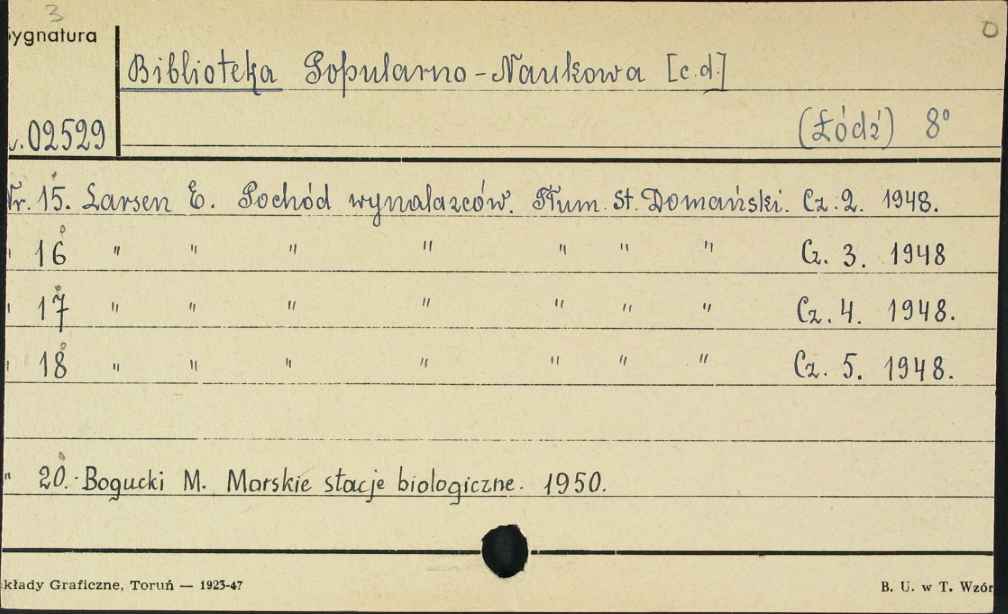 3
ygnatura
Biblioteka Popularno-Naukowa [c.d.]
02529
(Łódź) 8°
Nr. 15. Larsen E. Pochód wynalazców. Tłum. St. Domański. Cz. 2. 1948.
" 16 " " " " " " " Cz. 3. 1948
" 17 " " " " " " " Cz. 4. 1948.
" 18 " " " " " " " Cz. 5. 1948.
" 20. Bogucki M. Morskie stacje biologiczne. 1950.
kłady Graficzne, Toruń — 1923-47
B. U. w T. Wzór